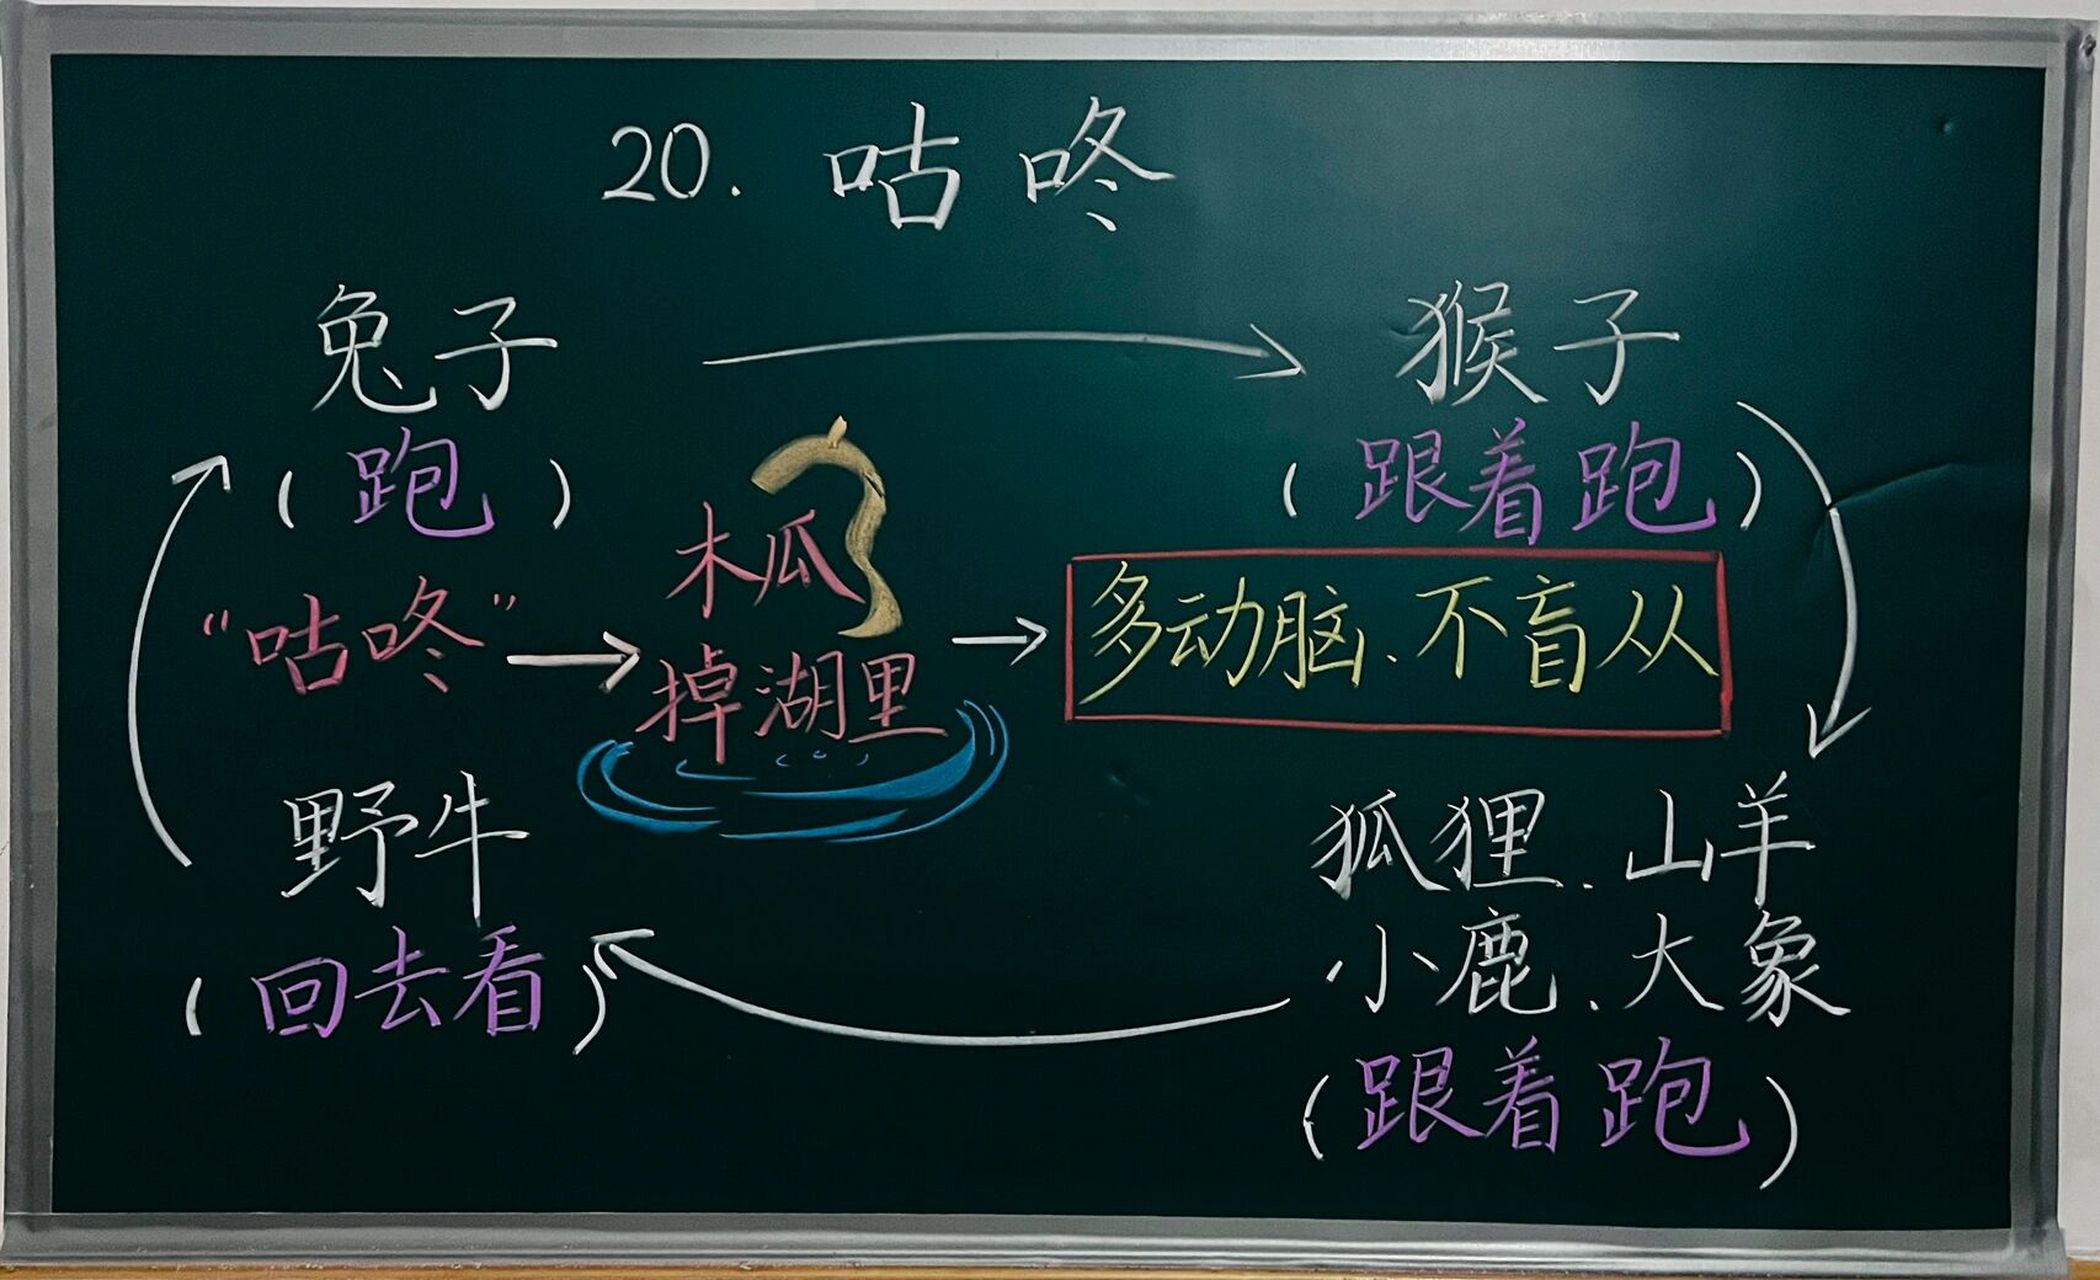 20. 咕咚
兔子 猴子
(跑) (跟着跑)
木瓜
“咕咚” 多动脑、不盲从
掉湖里
野牛 狐狸、山羊
小鹿、大象
(回去看)
(跟着跑)